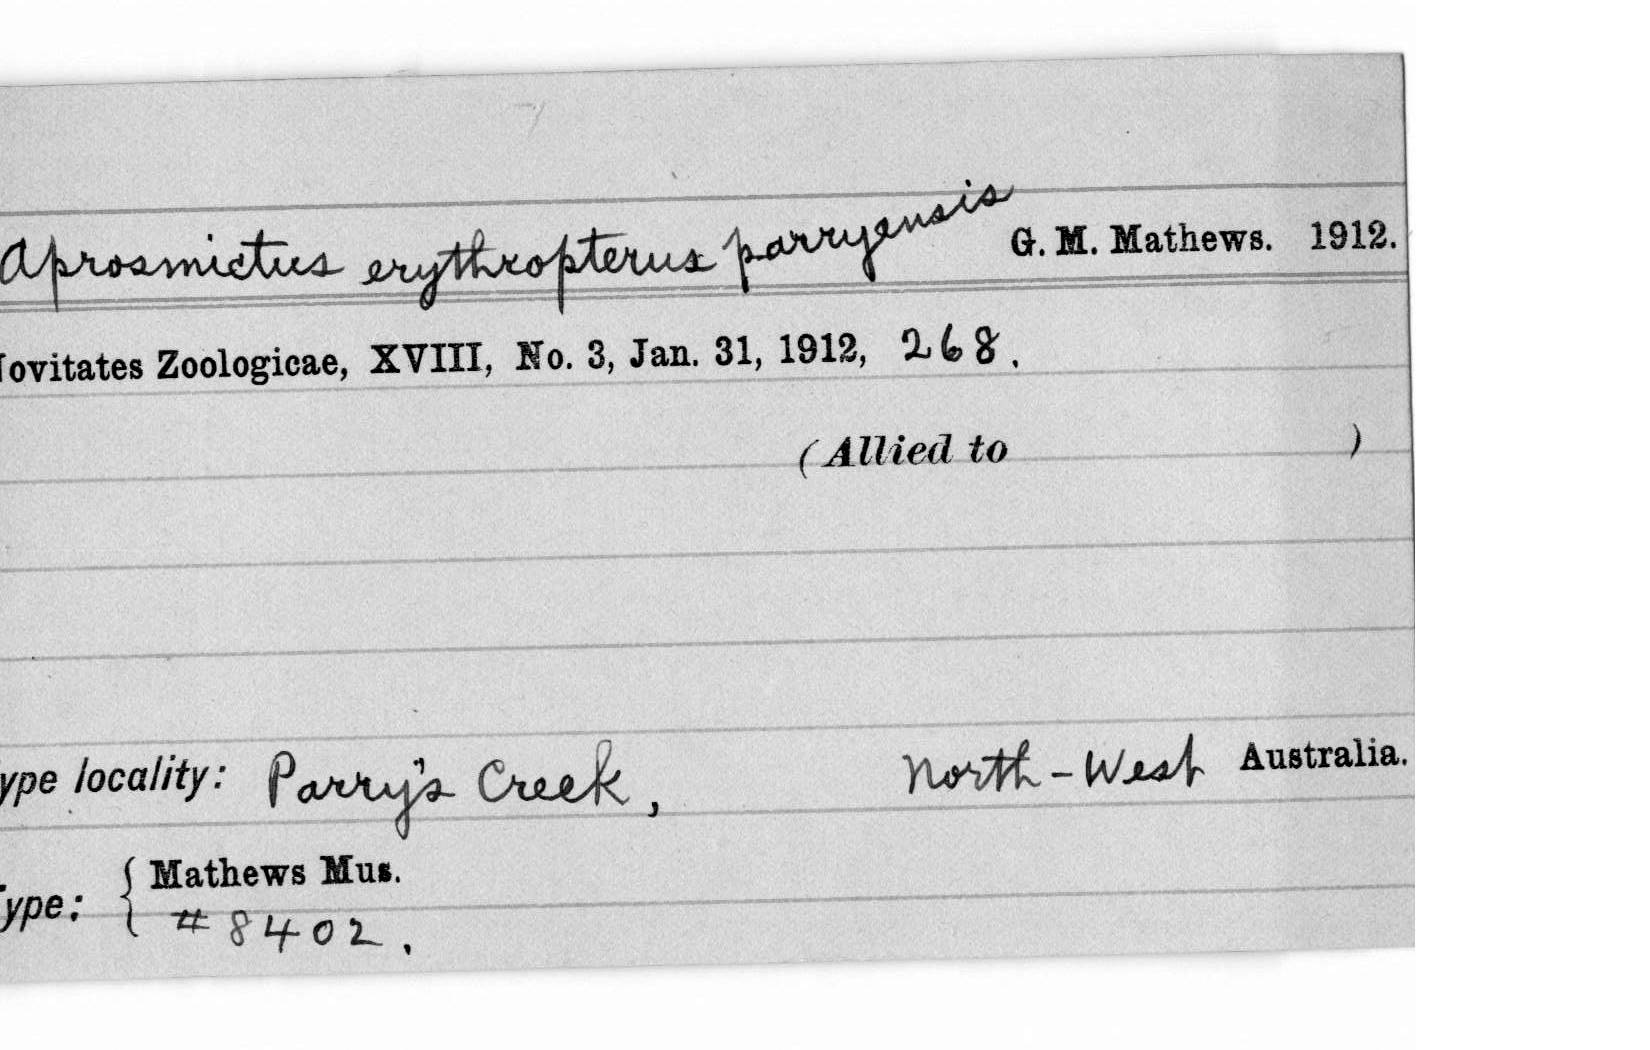 Aprosmictus erythropterus parryensis G. M. Mathews. 1912.
Novitates Zoologicae, XVIII, No. 3, Jan. 31, 1912, 268.
(Allied to )
ype locality: Parry's Creek, North-West Australia.
Mathews Mus.
ype: { #8402.